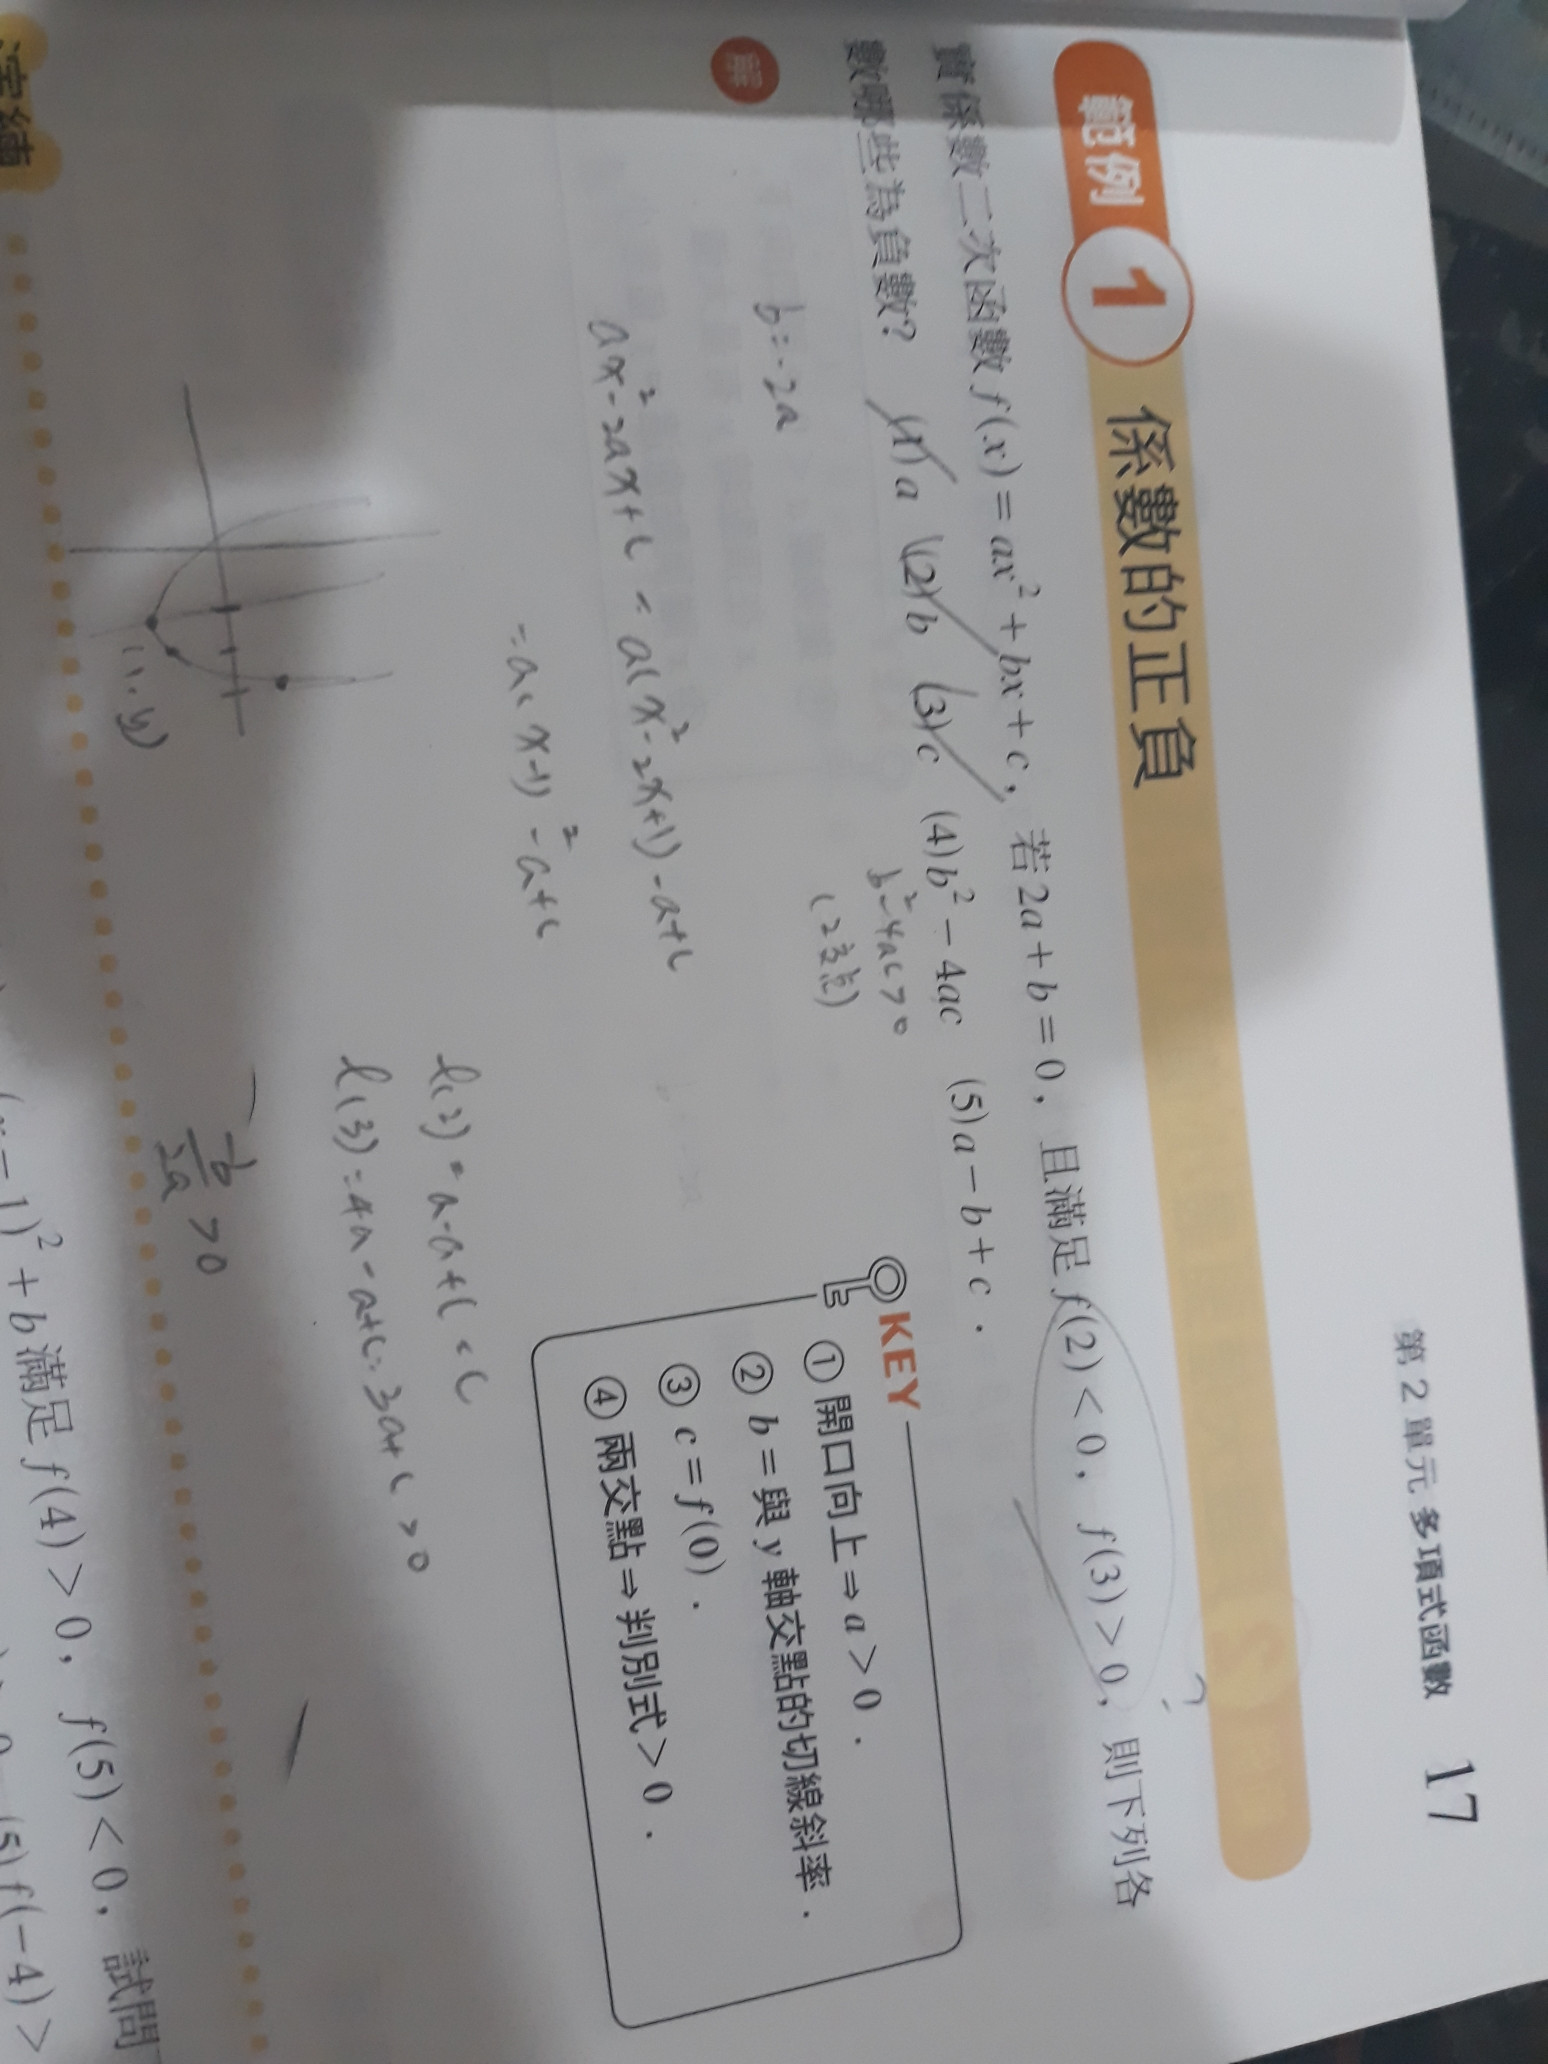 第 2 單元 多項式函數 17
範例 1 係數的正負
實係數二次函數 f(x)=ax²+bx+c，若 2a+b=0，且滿足 f(2)<0，f(3)>0，則下列各
?
數哪些為負數？ (1)a (2)b (3)c (4)b²-4ac (5)a-b+c．
b²-4ac>0
(2交點)
解
b=-2a
ax²-2ax+c = a(x²-2x+1)-a+c
=a(x-1)²-a+c
KEY
① 開口向上⇒a>0．
② b=與 y 軸交點的切線斜率．
③ c=f(0)．
④ 兩交點⇒判別式>0．
f(2)=a-a+c=c
f(3)=4a-a+c=3a+c>0
(1,y)
-b/2a >0
演練
(x-1)²+b 滿足 f(4)>0，f(5)<0，試問
(5)f(-4)>